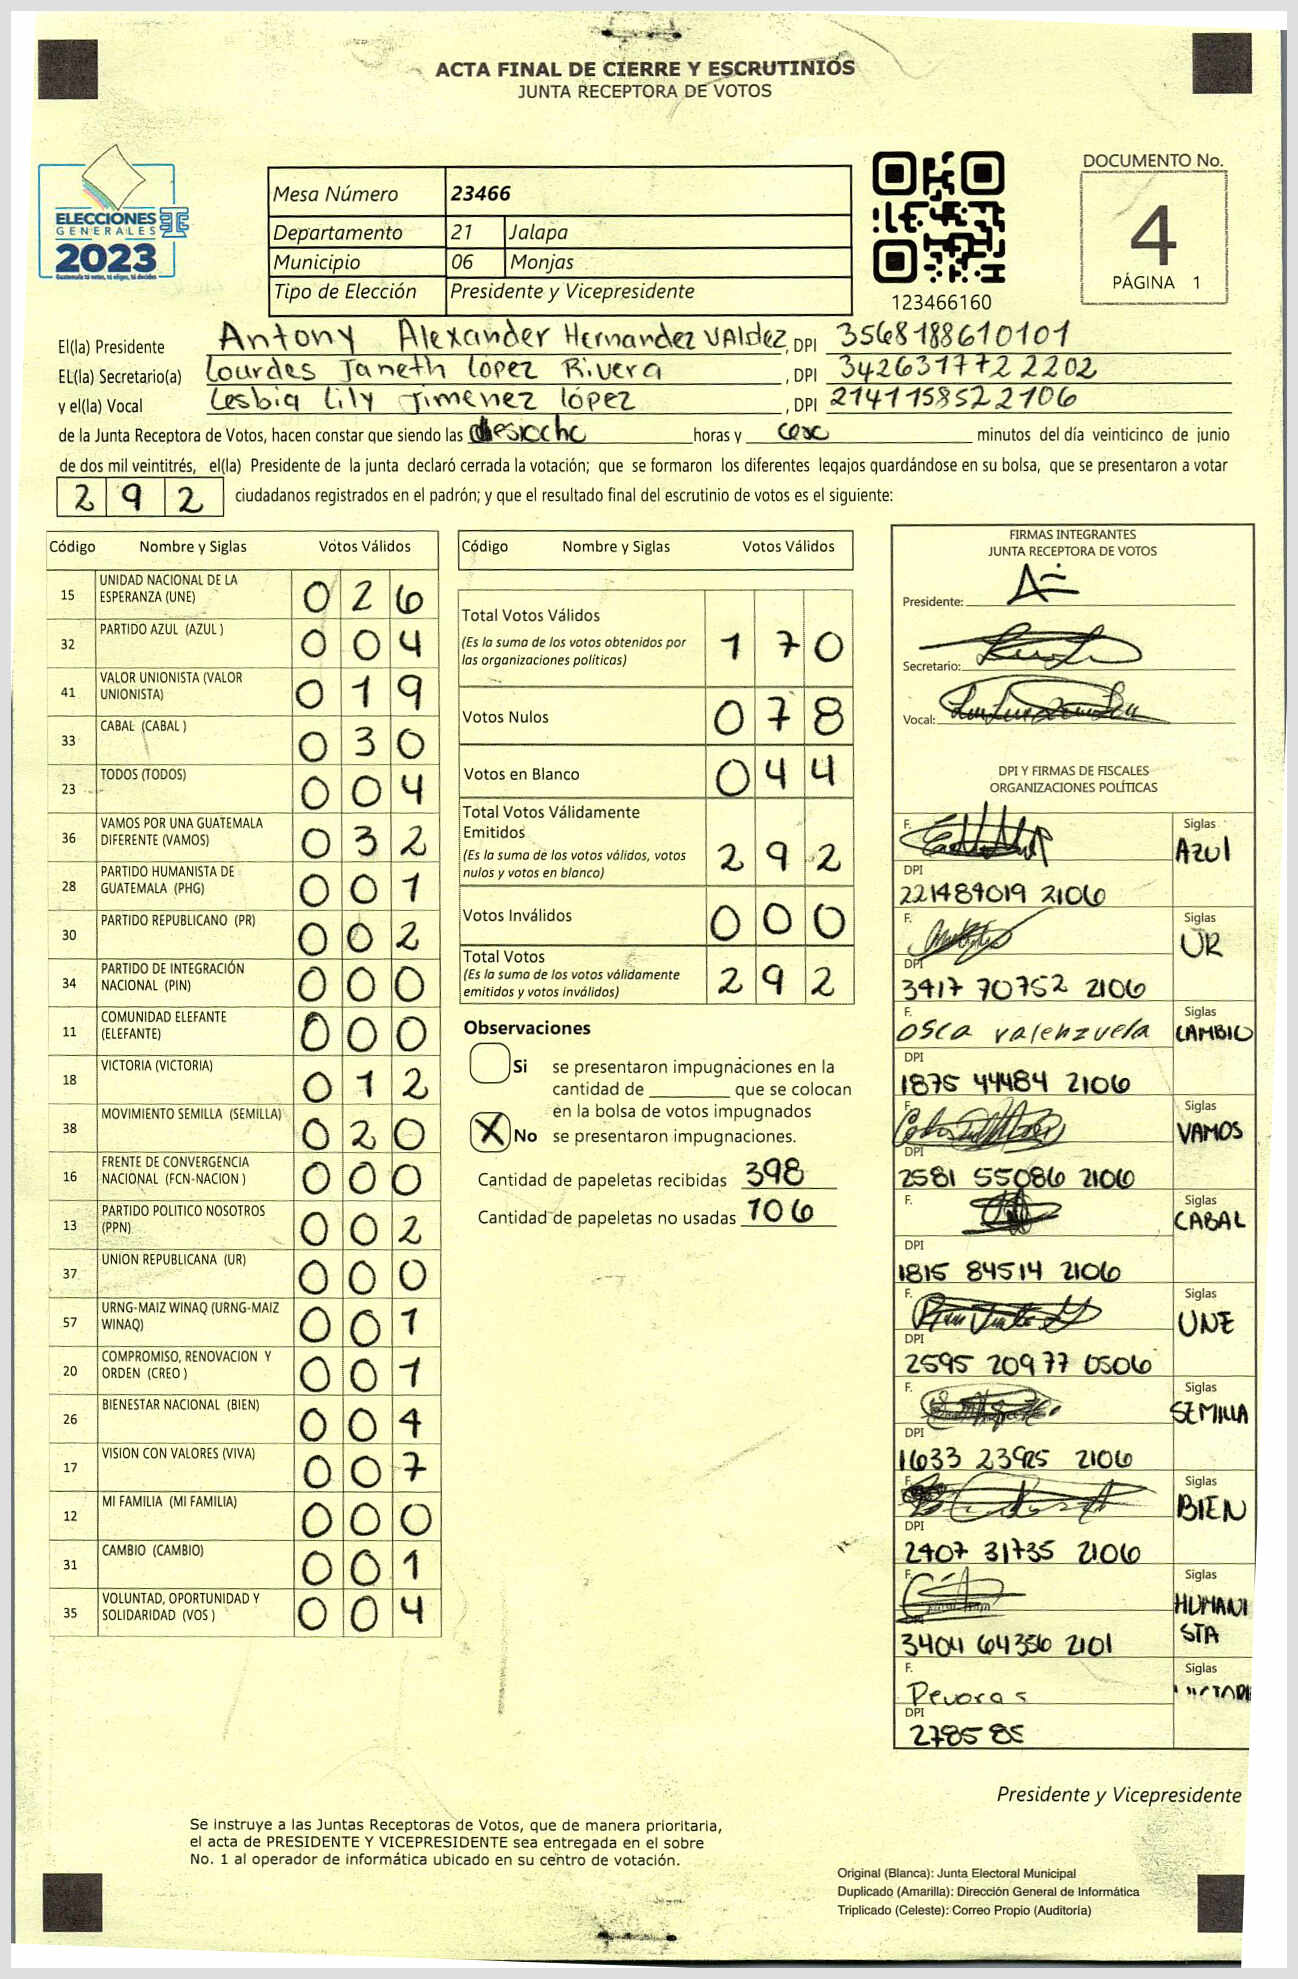 ACTA FINAL DE CIERRE Y ESCRUTINIOS
JUNTA RECEPTORA DE VOTOS
ELECCIONES
GENERALES
2023
Guatemala tú votas, tú eliges, tú decides
Mesa Número 23466
Departamento 21 Jalapa
Municipio 06 Monjas
Tipo de Elección Presidente y Vicepresidente
123466160
DOCUMENTO No.
4
PÁGINA 1
El(la) Presidente Antony Alexander Hernandez VAldez, DPI 3568188610101
EL(la) Secretario(a) Lourdes Janeth López Rivera, DPI 3426317722202
y el(la) Vocal Lesbia Lily Jimenez lópez, DPI 2141158522106
de la Junta Receptora de Votos, hacen constar que siendo las horas y minutos del día veinticinco de junio
de dos mil veintitrés, el(la) Presidente de la junta declaró cerrada la votación; que se formaron los diferentes legajos guardándose en su bolsa, que se presentaron a votar
292 ciudadanos registrados en el padrón; y que el resultado final del escrutinio de votos es el siguiente:
Código Nombre y Siglas Votos Válidos
15 UNIDAD NACIONAL DE LA ESPERANZA (UNE) 026
32 PARTIDO AZUL (AZUL ) 004
41 VALOR UNIONISTA (VALOR UNIONISTA) 019
33 CABAL (CABAL ) 030
23 TODOS (TODOS) 004
36 VAMOS POR UNA GUATEMALA DIFERENTE (VAMOS) 032
28 PARTIDO HUMANISTA DE GUATEMALA (PHG) 001
30 PARTIDO REPUBLICANO (PR) 002
34 PARTIDO DE INTEGRACIÓN NACIONAL (PIN) 000
11 COMUNIDAD ELEFANTE (ELEFANTE) 000
18 VICTORIA (VICTORIA) 012
38 MOVIMIENTO SEMILLA (SEMILLA) 020
16 FRENTE DE CONVERGENCIA NACIONAL (FCN-NACION ) 000
13 PARTIDO POLITICO NOSOTROS (PPN) 002
37 UNION REPUBLICANA (UR) 000
57 URNG-MAIZ WINAQ (URNG-MAIZ WINAQ) 001
20 COMPROMISO, RENOVACION Y ORDEN (CREO ) 001
26 BIENESTAR NACIONAL (BIEN) 004
17 VISION CON VALORES (VIVA) 007
12 MI FAMILIA (MI FAMILIA) 000
31 CAMBIO (CAMBIO) 001
35 VOLUNTAD, OPORTUNIDAD Y SOLIDARIDAD (VOS ) 004
Código Nombre y Siglas Votos Válidos
Total Votos Válidos 170
(Es la suma de los votos obtenidos por
las organizaciones políticas)
Votos Nulos 078
Votos en Blanco 044
Total Votos Válidamente
Emitidos 292
(Es la suma de los votos válidos, votos
nulos y votos en blanco)
Votos Inválidos 000
Total Votos 292
(Es la suma de los votos válidamente
emitidos y votos inválidos)
Observaciones
Si se presentaron impugnaciones en la
cantidad de ________ que se colocan
en la bolsa de votos impugnados
X No se presentaron impugnaciones.
Cantidad de papeletas recibidas 398
Cantidad de papeletas no usadas 106
FIRMAS INTEGRANTES
JUNTA RECEPTORA DE VOTOS
Presidente:
Secretario:
Vocal:
DPI Y FIRMAS DE FISCALES
ORGANIZACIONES POLÍTICAS
F. Siglas AZUl
DPI
221489019 2106
F. Siglas UR
DPI
3417 70752 2106
F. Osca valenzuela Siglas CAMBIO
DPI
1875 44484 2106
F. Siglas VAMOS
DPI
2581 55086 2106
F. Siglas CABAL
DPI
1815 84514 2106
F. Siglas UNE
DPI
2595 20977 0506
F. Siglas SEMILLA
DPI
1633 2106
F. Siglas BIEN
DPI
2407 31735 2106
F. Siglas HUMANI
STA
DPI
3404 64356 2101
F. Siglas
DPI
278585
Presidente y Vicepresidente
Se instruye a las Juntas Receptoras de Votos, que de manera prioritaria,
el acta de PRESIDENTE Y VICEPRESIDENTE sea entregada en el sobre
No. 1 al operador de informática ubicado en su centro de votación.
Original (Blanca): Junta Electoral Municipal
Duplicado (Amarilla): Dirección General de Informática
Triplicado (Celeste): Correo Propio (Auditoría)